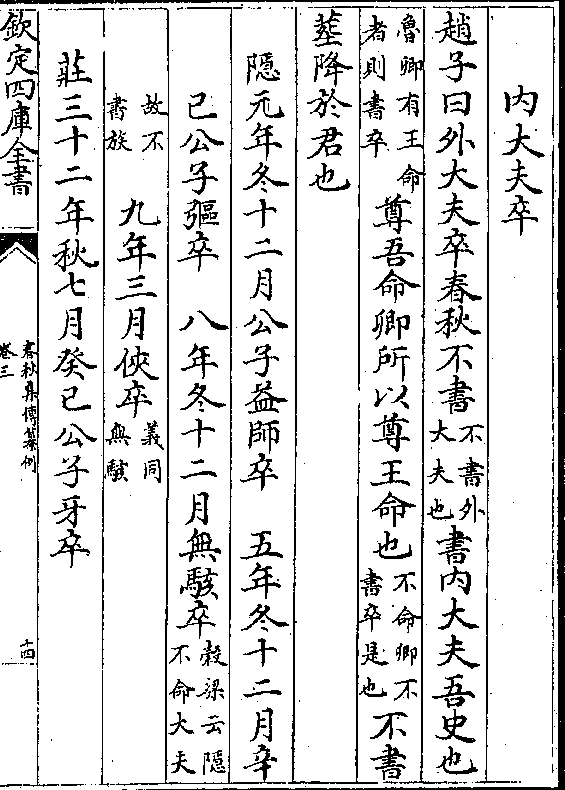 內大夫卒
趙子曰外大夫卒春秋不書不書外大夫也書內大夫吾史也
魯卿有王命者則書卒尊吾命卿所以尊王命也不命卿不書卒是也不書
塟降於君也
隱元年冬十二月公子益師卒 五年冬十二月辛
巳公子彄卒 八年冬十二月無駭卒榖梁云隱不命大夫
故不書族 九年三月俠卒義同無駭
莊三十二年秋七月癸巳公子牙卒
欽定四庫全書
春秋集傳纂例
卷三
十四